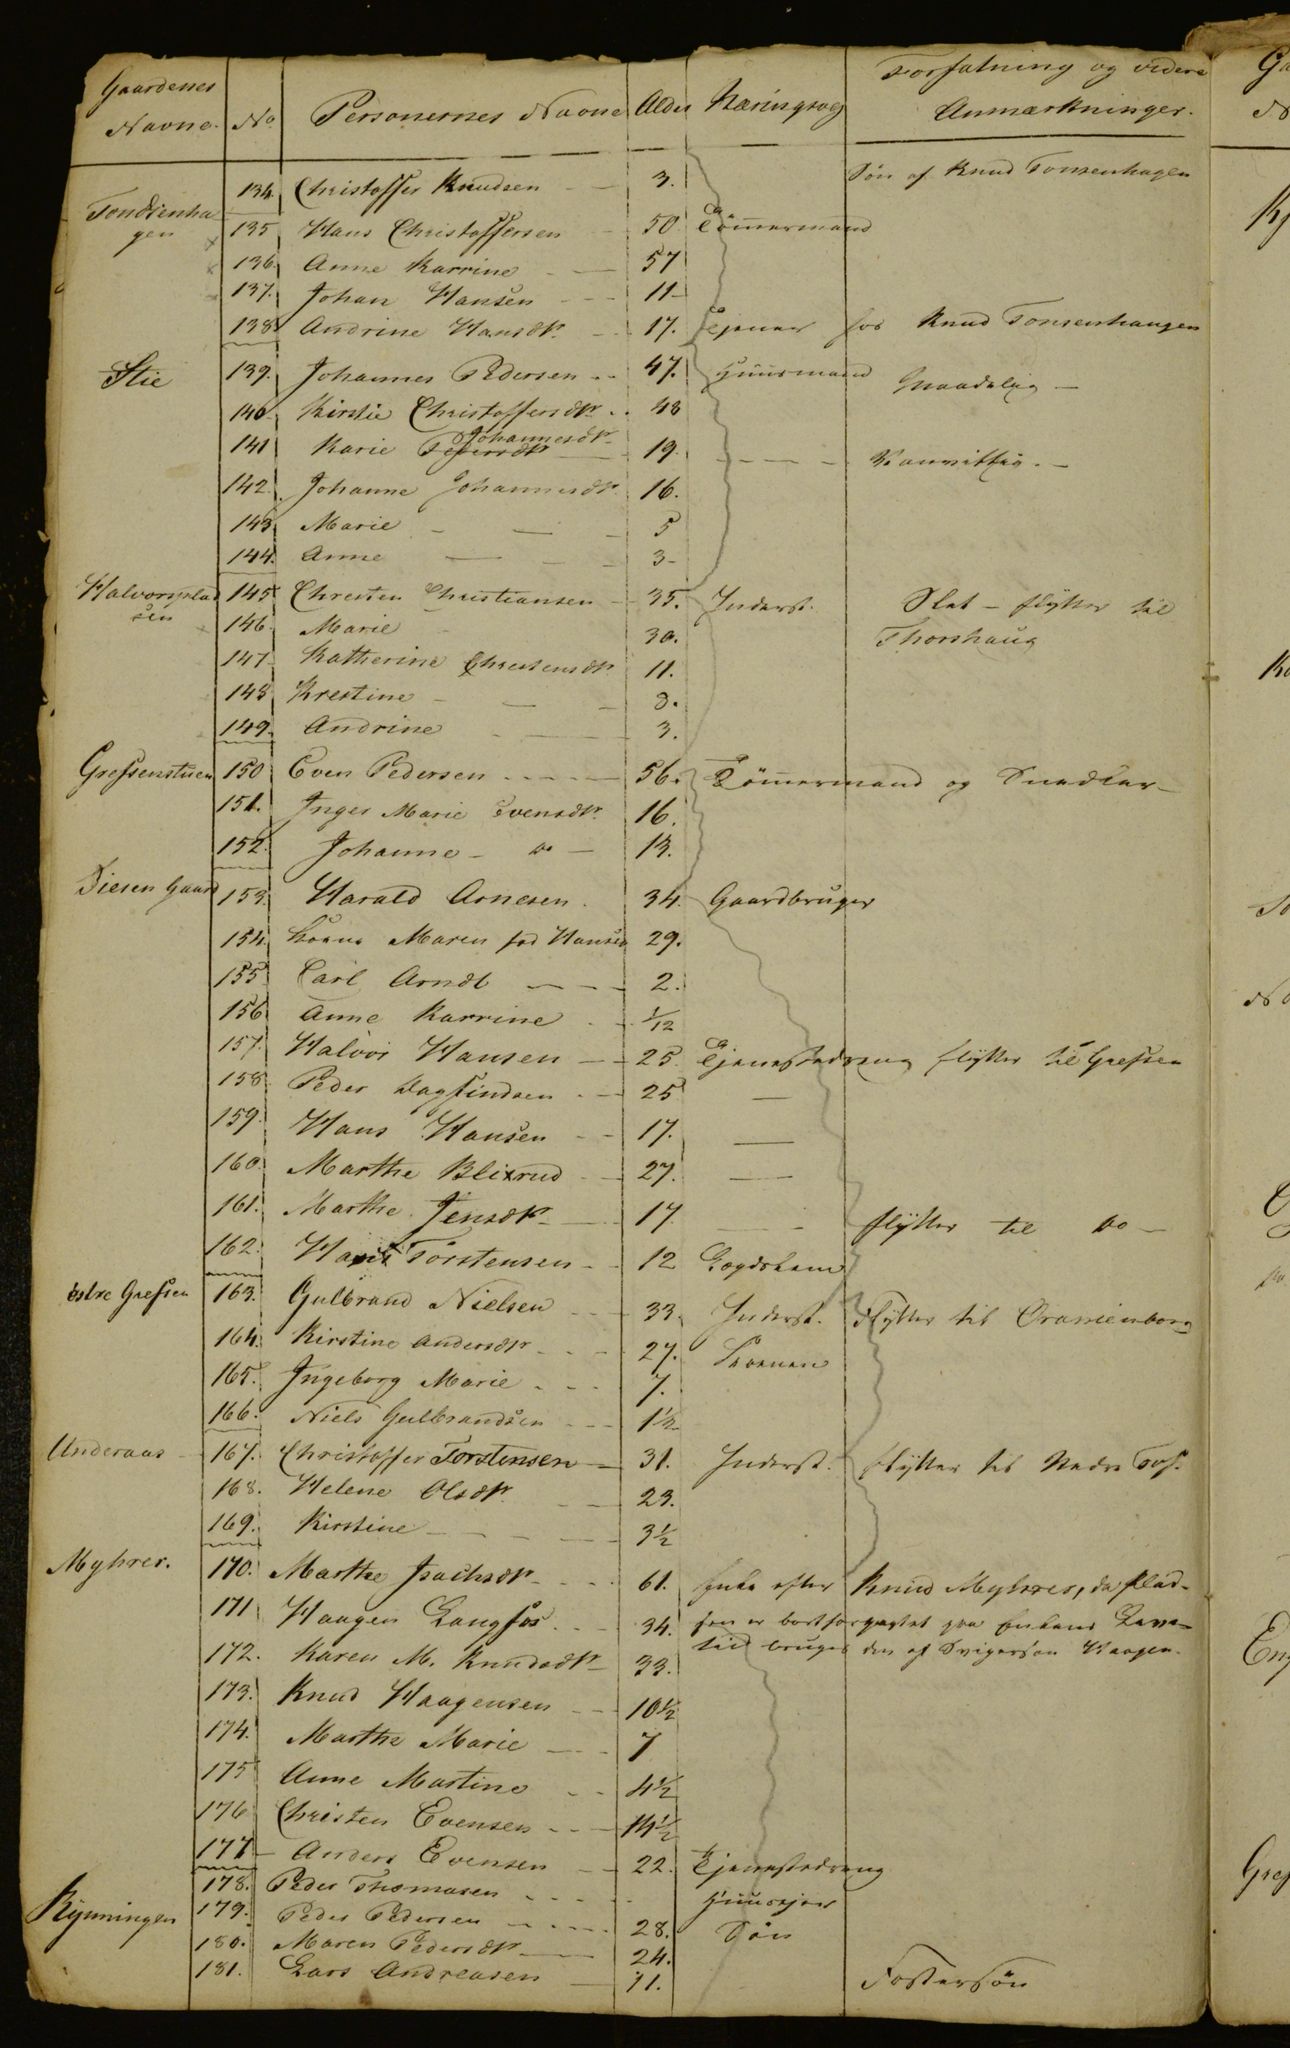 Gaardenes Navne. No Personernes Navne Alder Næringsvej Forfatning og videre Anmærkninger.
134. Christoffer Knudsen - - 3. Søn af Knud Tonsenhagen
Tonsenhagen 135 Hans Christoffersen - 50 Tömmermand
136. Anne Karrine - - 57
137. Johan Hansen - - - 11 -
138 Andrine Hansdtr. - - 17. Tjener hos Knud Tonsenhaugen
Stie 139. Johannes Pedersen - - 47. Huusmand Maadelig -
140. Kirstie Christoffersdtr. - - 48
141 Karie Johannesdtr - 19. - - - - Vanvittig. -
142. Johanne Johannesdtr 16.
143. Marie - - - 5
144. Anne - - - 3 -
Halvorspladsen 145. Christen Christiansen - 35. Inderst. Slet - flytter til
146. Marie - 30. Thorshaug
147 Katherine Christensdtr 11.
148 Krestine - - - 8.
149. Andrine - - 3.
Grefsenstuen 150 Even Pedersen - - - - 56. Tömmermand og Snedker -
151. Inger Marie Evensdtr. 16.
152. Johanne - do - 13.
Diesen Gaard 153. Harald Arnesen. 34. Gaardbruger
154. Konen Maren fød Hansen 29.
155 Carl Arndt - - - 2.
156 Anne Karrine - - 1/12
157. Halvor Hansen - - 25. Tjenestedreng flytter til Grefsen
158 Peder Dagfindsen - - 25 -
159. Hans Hansen - - 17. -
160 Marthe Blixrud - - 27. -
161. Marthe Jensdtr - - 17 - - flytter til do -
162. Hans Torstensen - - 12 Lægdslem
östre Grefsen 163. Gulbrand Nielsen - - 33. Inderst. flytter til Oranienborg
164. Kirstine Andersdtr - - - 27. Konen
165. Ingeborg Marie - - - 7.
166. Niels Gulbrandsen - - 1½
Underaas - 167. Christoffer Torstensen - 31. Inderst. flytter til Nedre Fos.
168. Helene Olsdtr. - - 23.
169. Kirstine - - - - 3½
Myhrer. 170. Marthe Isachsdtr - - - 61. Enke efter Knud Myhrer, da Plad-
171 Haagen Langfos. - - 34. sen er bortforpagtet paa Enkens Leve-
172. Karen M. Knudsdtr - 33. tid bruges den af Svigersøn Haagen.
173. Knud Haagensen - - 10½
174. Marthe Marie - - 7
175 Anne Martine - - 4½
176 Christen Evensen - - - 14½
177 - Anders Evensen - - 22. Tjenestedreng
178. Peder Thomasen - - - - - Huusejer
Rynningen 179. Peder Pedersen - - - - 28. Søn
180. Maren Pedersdtr - - 24.
181. Lars Andreasen - 11. Fostersøn